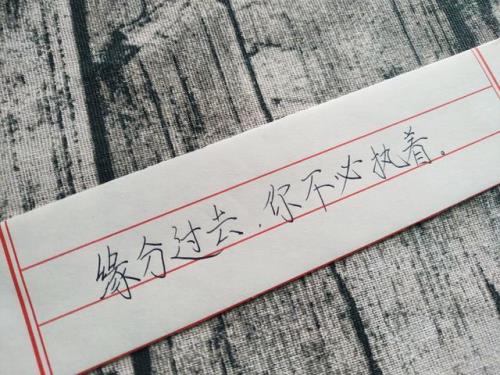 缘分过去，你不必执着。